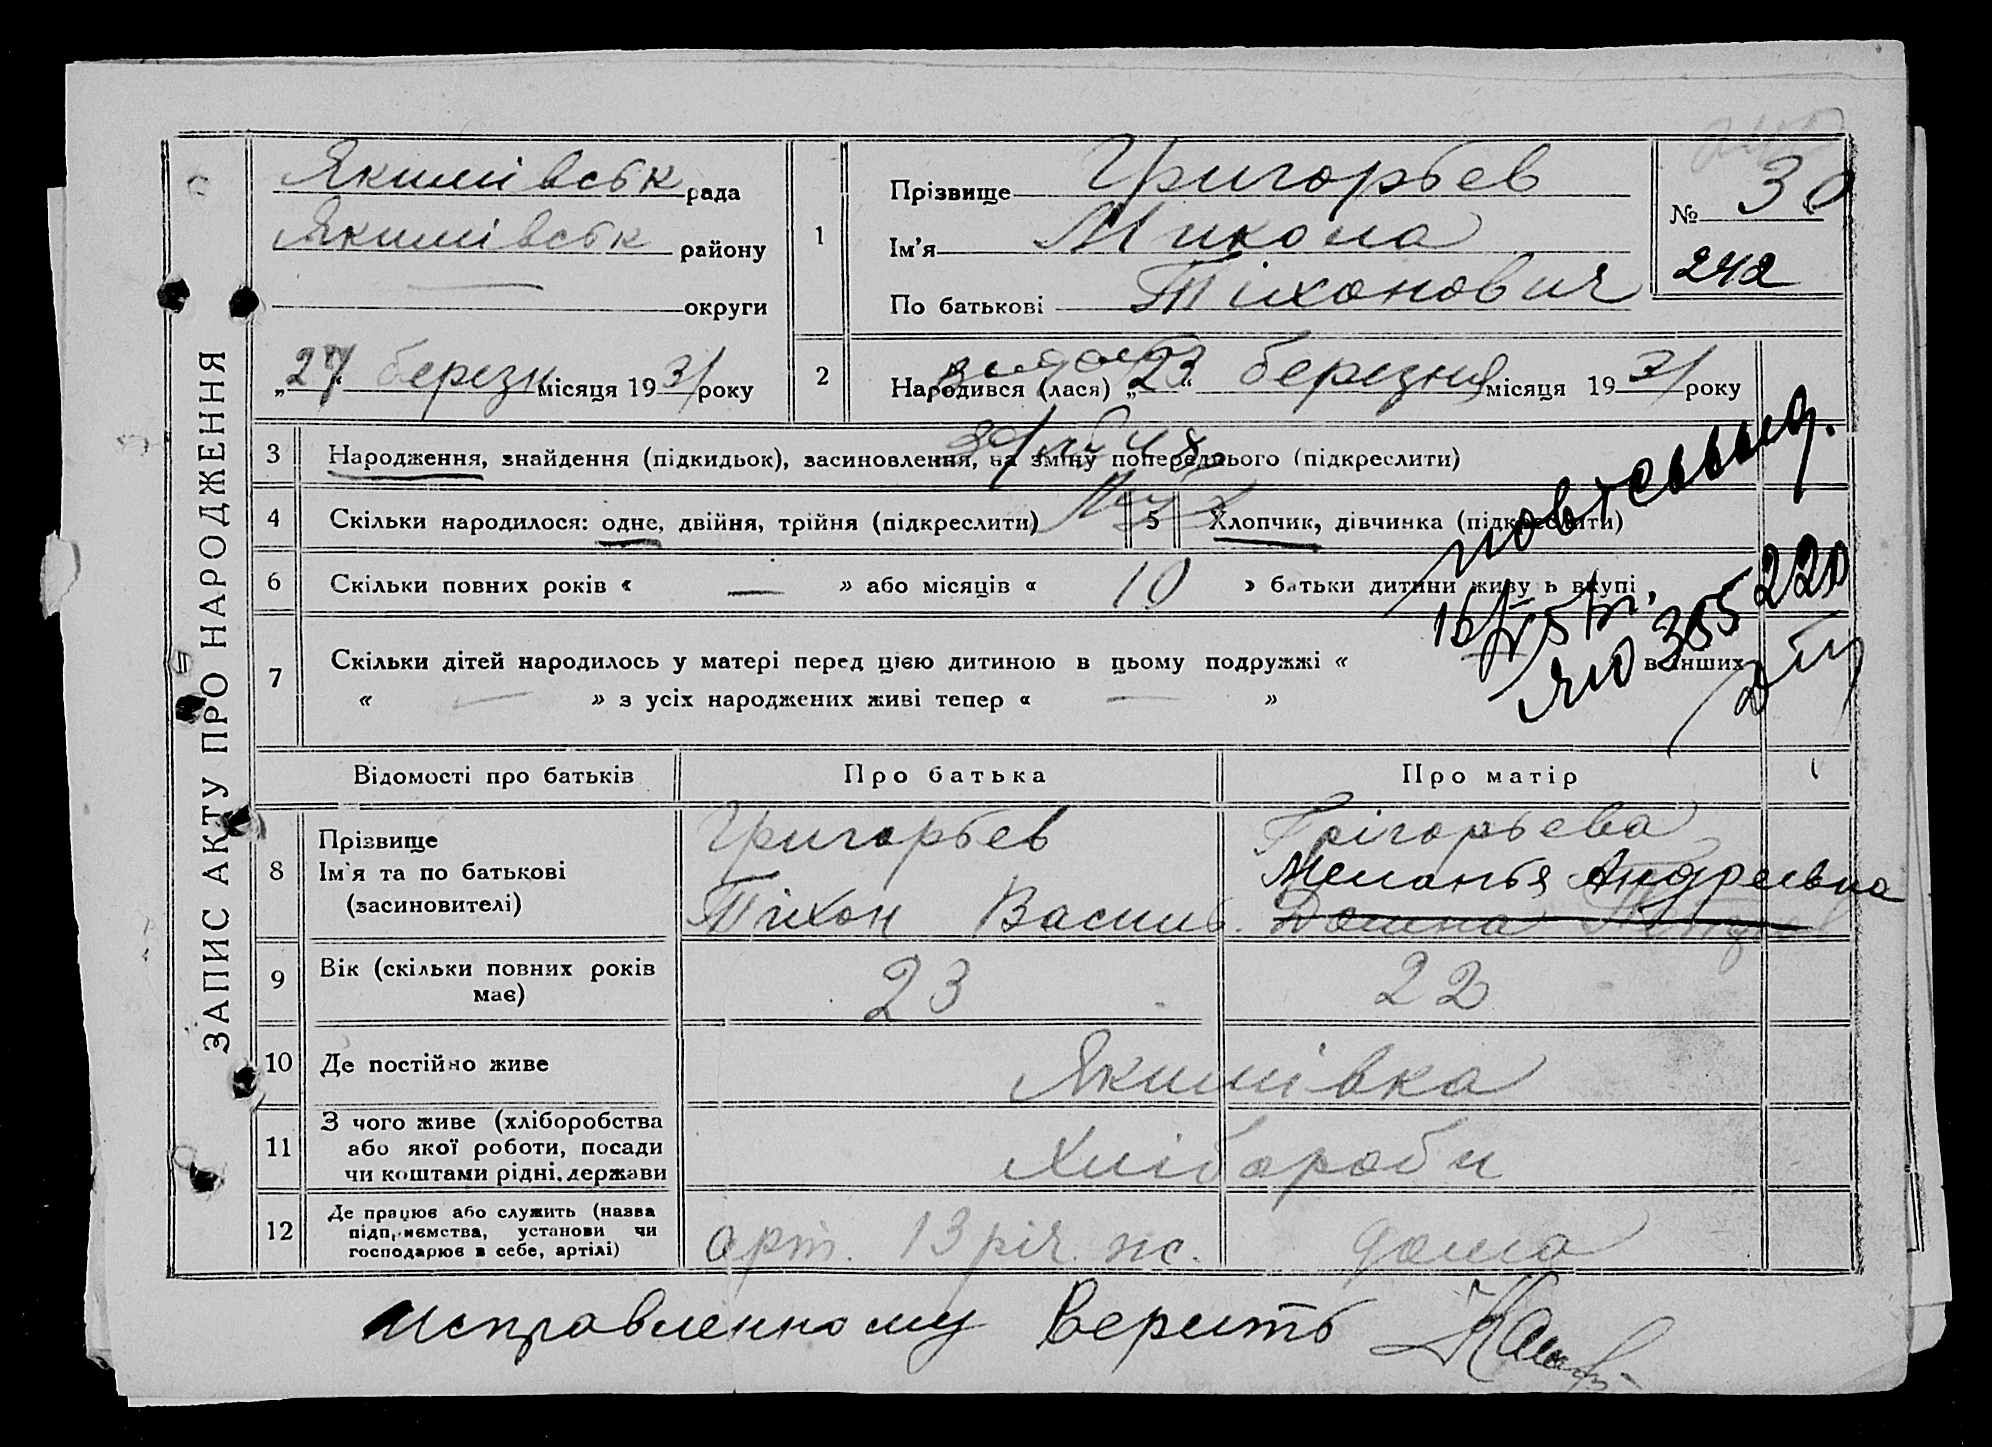 ЗАПИС АКТУ ПРО НАРОДЖЕННЯ
Якимівськ рада
Якимівськ району
округи
„27“ березн місяця 1931 року
1
Прізвище Григорьев
Ім'я Микола
По батькові Тіхонович
№ 30
242
2
Народився (лася) „23“ березня місяця 1931 року
3 Народження, знайдення (підкидьок), засиновлення, на зміну попереднього (підкреслити)
4 Скільки народилося: одне, двійня, трійня (підкреслити)
5 Хлопчик, дівчинка (підкреслити)
6 Скільки повних років « — » або місяців « 10 » батьки дитини живуть вкупі
7 Скільки дітей народилось у матері перед цією дитиною в цьому подружжі « в інших
« — » з усіх народжених живі тепер « — »
повтельны
305220
Відомості про батьків Про батька Про матір
8 Прізвище
Ім'я та по батькові
(засиновителі)
Григорьев
Тіхон Васили.
Грігорьева
Меланья Андреевна
Домна
9 Вік (скільки повних років
має)
23 22
10 Де постійно живе Якимівка
11 З чого живе (хліборобства
або якої роботи, посади
чи коштами рідні, держави
Хлібороби
12 Де працює або служить (назва
підприємства, установи чи
господарює в себе, артілі)
арт. 13 річ. дома
Исправленному верить